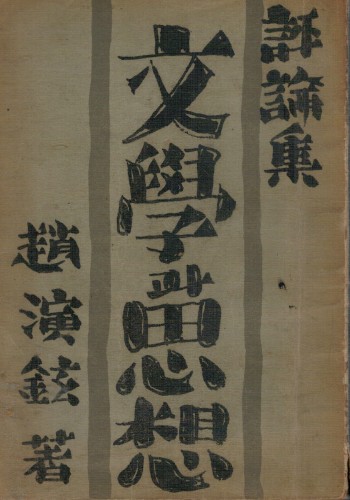 評論集
文學과思想
趙演鉉著